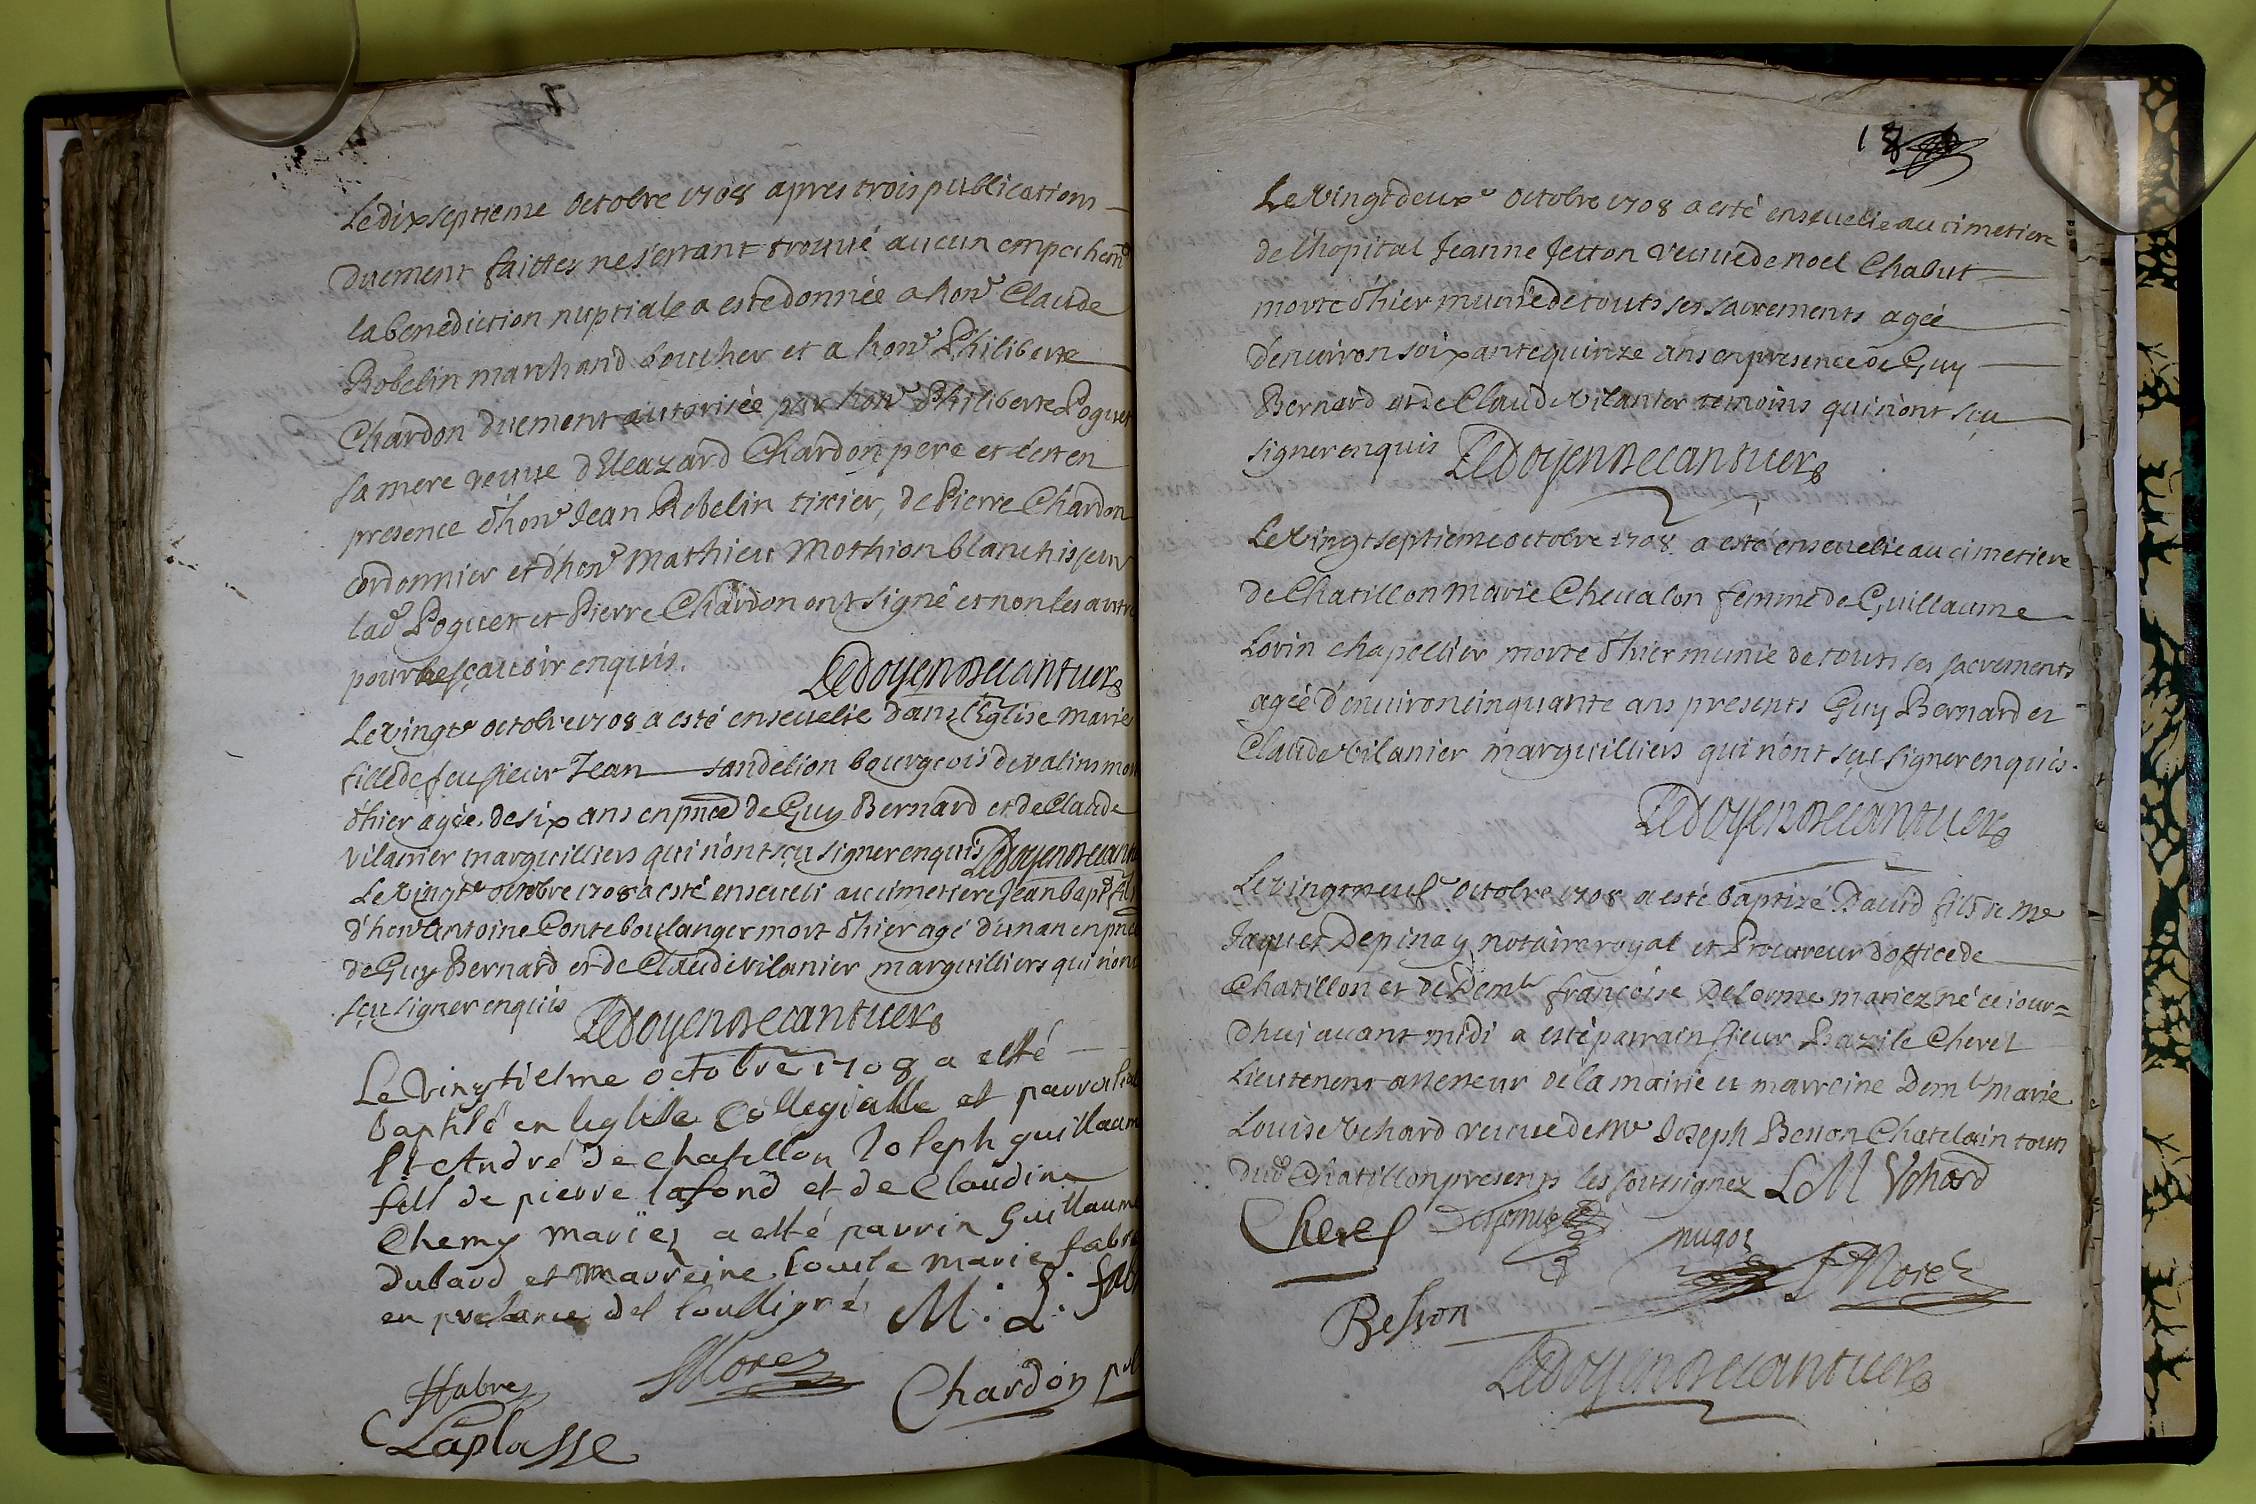 Le dix septieme octobre 1708 apres trois publications
duement faittes ne s'errant trouvé aucun empechemt
la benediction nuptiale a este donnée a honr Claude
Robelin marchand boucher et a honr Philiberte
Chardon duement autorisée par honr Philiberte Poguet
sa mere veuve d'Eleazard Chardon pere et c'est en
presence d'honr Jean Robelin tixier, de Pierre Chardon
cordonnier et d'honr Mathieu Mothion blanchisseur
lad Poguet et Pierre Chardon ont signé et non les autre
pour ne sçavoir enquis. Ledoyen
Le vingte octobre 1708 a esté ensevelie dans l'Eglise Marie
fille de feu sieur Jean sandelion bourgeois de valins
d'hier agée de six ans en pnce de Guy Bernard et de Claude
vilanier marguilliers qui n'ont sçu signer enquis Ledoyen
Le vingte octobre 1708 a esté enseveli au cimetiere Jean Bapt fils
d'honr Antoine Conte boulanger mort d'hier agé d'un an en pnce
de Guy Bernard et de Claude vilanier marguilliers qui n'ont
sçu signer enquis Ledoyen
Le Vingtiesme octobre 1708 a esté
baptisé en leglise Collegialle et parroissial
st André de chatillon Joseph guillaume
fils de pierre lafond et de Claudine
Chemy mariez a esté parrin Guillaume
Dubard et marreine Louise marie fabre
en presence des soussigné M. L. fab
Fabre Morel Chardon
Laplasse
18
Le vingt deuxe octobre 1708 a esté ensevelie au cimetiere
de l'hopital Jeanne Jetton veuve de Noel Chabut
morte d'hier munie de touts ses sacrements agée
d'environ soixante quinze ans en presence de Guy
Bernard et de Claude vilanier temoins qui n'ont sçu
signer enquis Ledoyen
Le vingt septieme octobre 1708 a esté ensevelie au cimetiere
de Chatillon Marie Chevalon femme de Guillaume
Lorin chapellier morte d'hier munie de touts ses sacrements
agée d'environ cinquante ans presents Guy Bernard et
Claude vilanier marguilliers qui n'ont sçu signer enquis.
Ledoyen
Le vingt neufe octobre 1708 a esté baptizé David fils de Me
Jaques Depinay notaire royal et Procureur d'office de
Chatillon et de Demle françoise Delorme mariez né ce iour=
dhuj avant midi a esté parrain sieur Bazile Cherel
Lieutenent assesseur de la mairie et marreine Demle Marie
Louise Vchard veuve de Mr Joseph Besson Chatelain touts
dud Chatillon presents les soussignez L M Vchard
Cherel Morel
Besson
Ledoyen